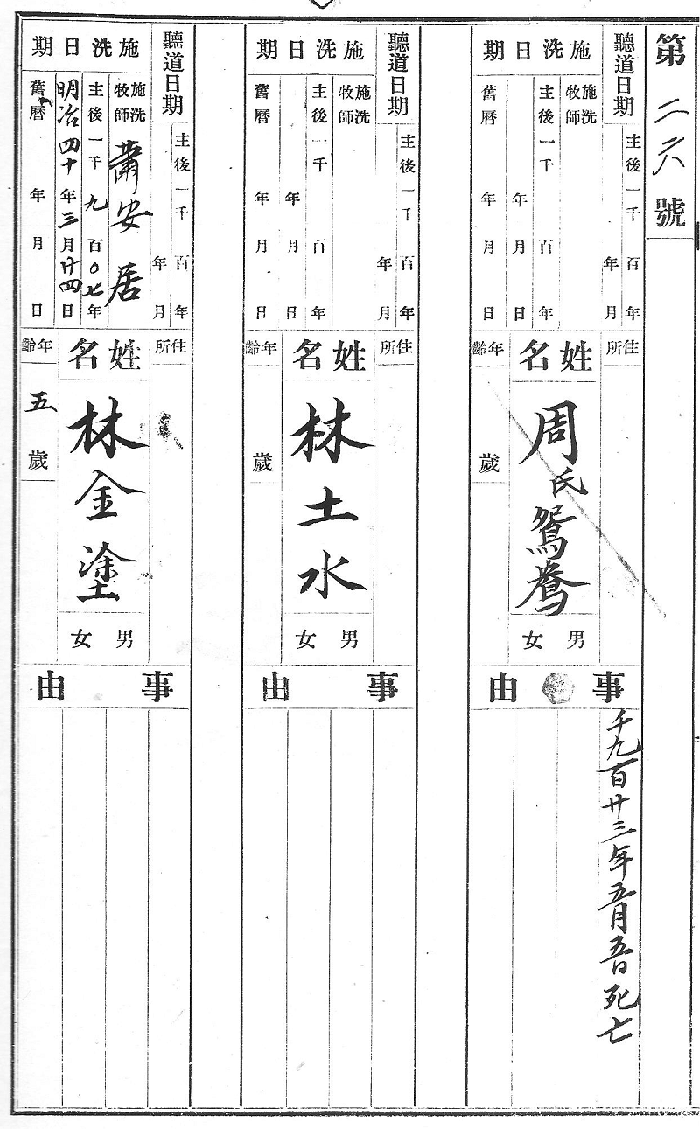 第二六號
聽道日期
主後一千 百 年
年 月
施洗日期
施洗牧師
主後一千 百 年
年 月 日
舊曆 年 月 日
住所
姓名
周氏鴛鴦
男女
年齡
歲
事由
千九百廿三年五月五日死亡
聽道日期
主後一千 百 年
年 月
施洗日期
施洗牧師
主後一千 百 年
年 月 日
舊曆 年 月 日
住所
姓名
林土水
男女
年齡
歲
事由
聽道日期
主後一千 百 年
年 月
施洗日期
施洗牧師 蕭安居
主後一千九百〇七年
明治四十年三月廿四日
舊曆 年 月 日
住所
姓名
林金塗
男女
年齡
五歲
事由